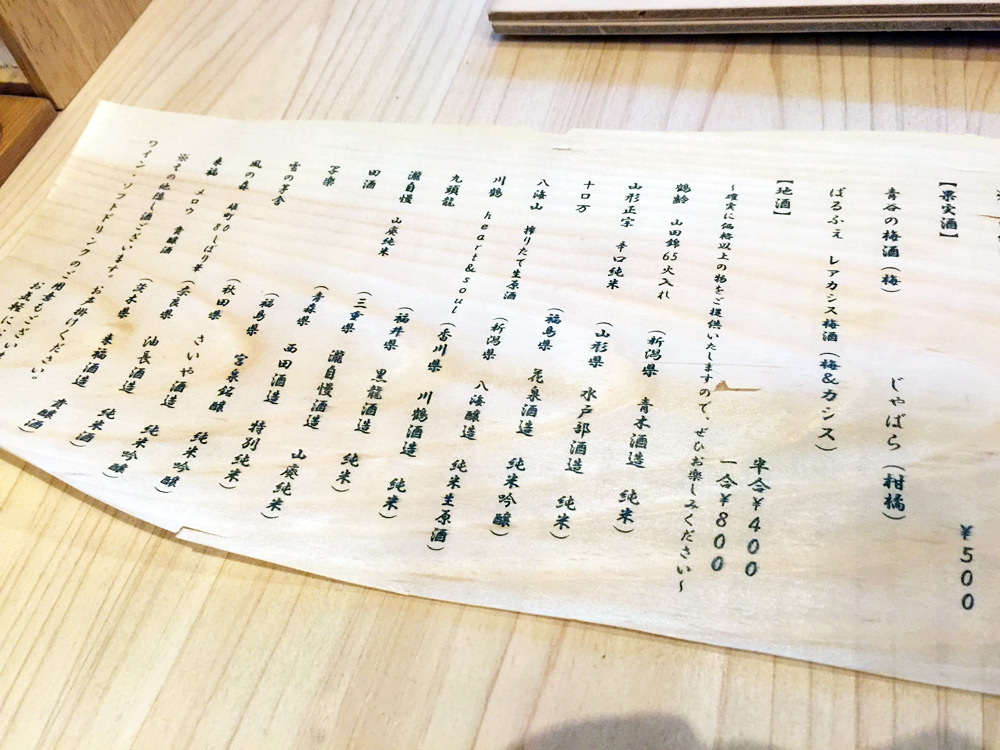 【果実酒】 ¥500
青谷の梅酒(梅) じゃばら(柑橘)
ぱるふぇ レアカシス梅酒(梅&カシス)
【地酒】 半合¥400
一合¥800
~確実に価格以上の物をご提供いたしますので、ぜひお楽しみください~
鶴齢 山田錦65火入れ (新潟県 青木酒造 純米)
山形正宗 辛口純米 (山形県 水戸部酒造 純米)
十ロ万 (福島県 花泉酒造 純米吟醸)
八海山 搾りたて生原酒 (新潟県 八海醸造 純米生原酒)
川鶴 heart&soul (香川県 川鶴酒造 純米)
九頭龍 (福井県 黒龍酒造 純米)
瀧自慢 山廃純米 (三重県 瀧自慢酒造 山廃純米)
田酒 (青森県 西田酒造 特別純米)
写楽 (福島県 宮泉銘醸 純米吟醸)
雪の茅舎 (秋田県 さいや酒造 純米吟醸)
風の森 雄町80しぼり華 (奈良県 油長酒造 純米酒)
来福 メロウ 貴醸酒 (茨木県 来福酒造 貴醸酒)
※その他隠し酒ございます。お声掛けください。
ワイン・ソフトドリンクのご用意もございます。